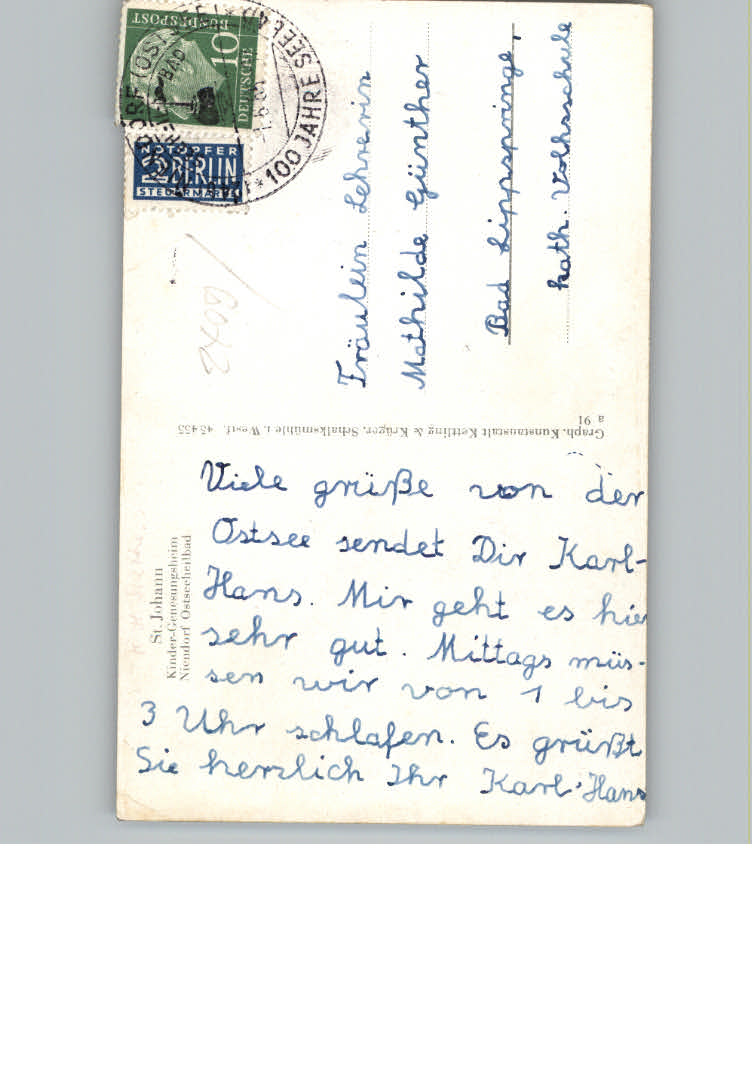 St. Johann
Kinder-Genesungsheim
Niendorf Ostseeheilbad
Viele grüße von der
Ostsee sendet Dir Karl-
Hans. Mir geht es hier
sehr gut. Mittags müs-
sen wir von 1 bis
3 Uhr schlafen. Es grüßt
Sie herzlich Ihr Karl-Hans
Graph. Kunstanstalt Kettling & Krüger, Schalksmühle i. Westf. 45455
a 91
DEUTSCHE
BUNDESPOST
10
NOTOPFER
2 BERLIN
STEUERMARKE
* 100 JAHRE
Fräulein Lehrerin
Mathilde Günther
Bad Lippspringe,
kath. Volksschule